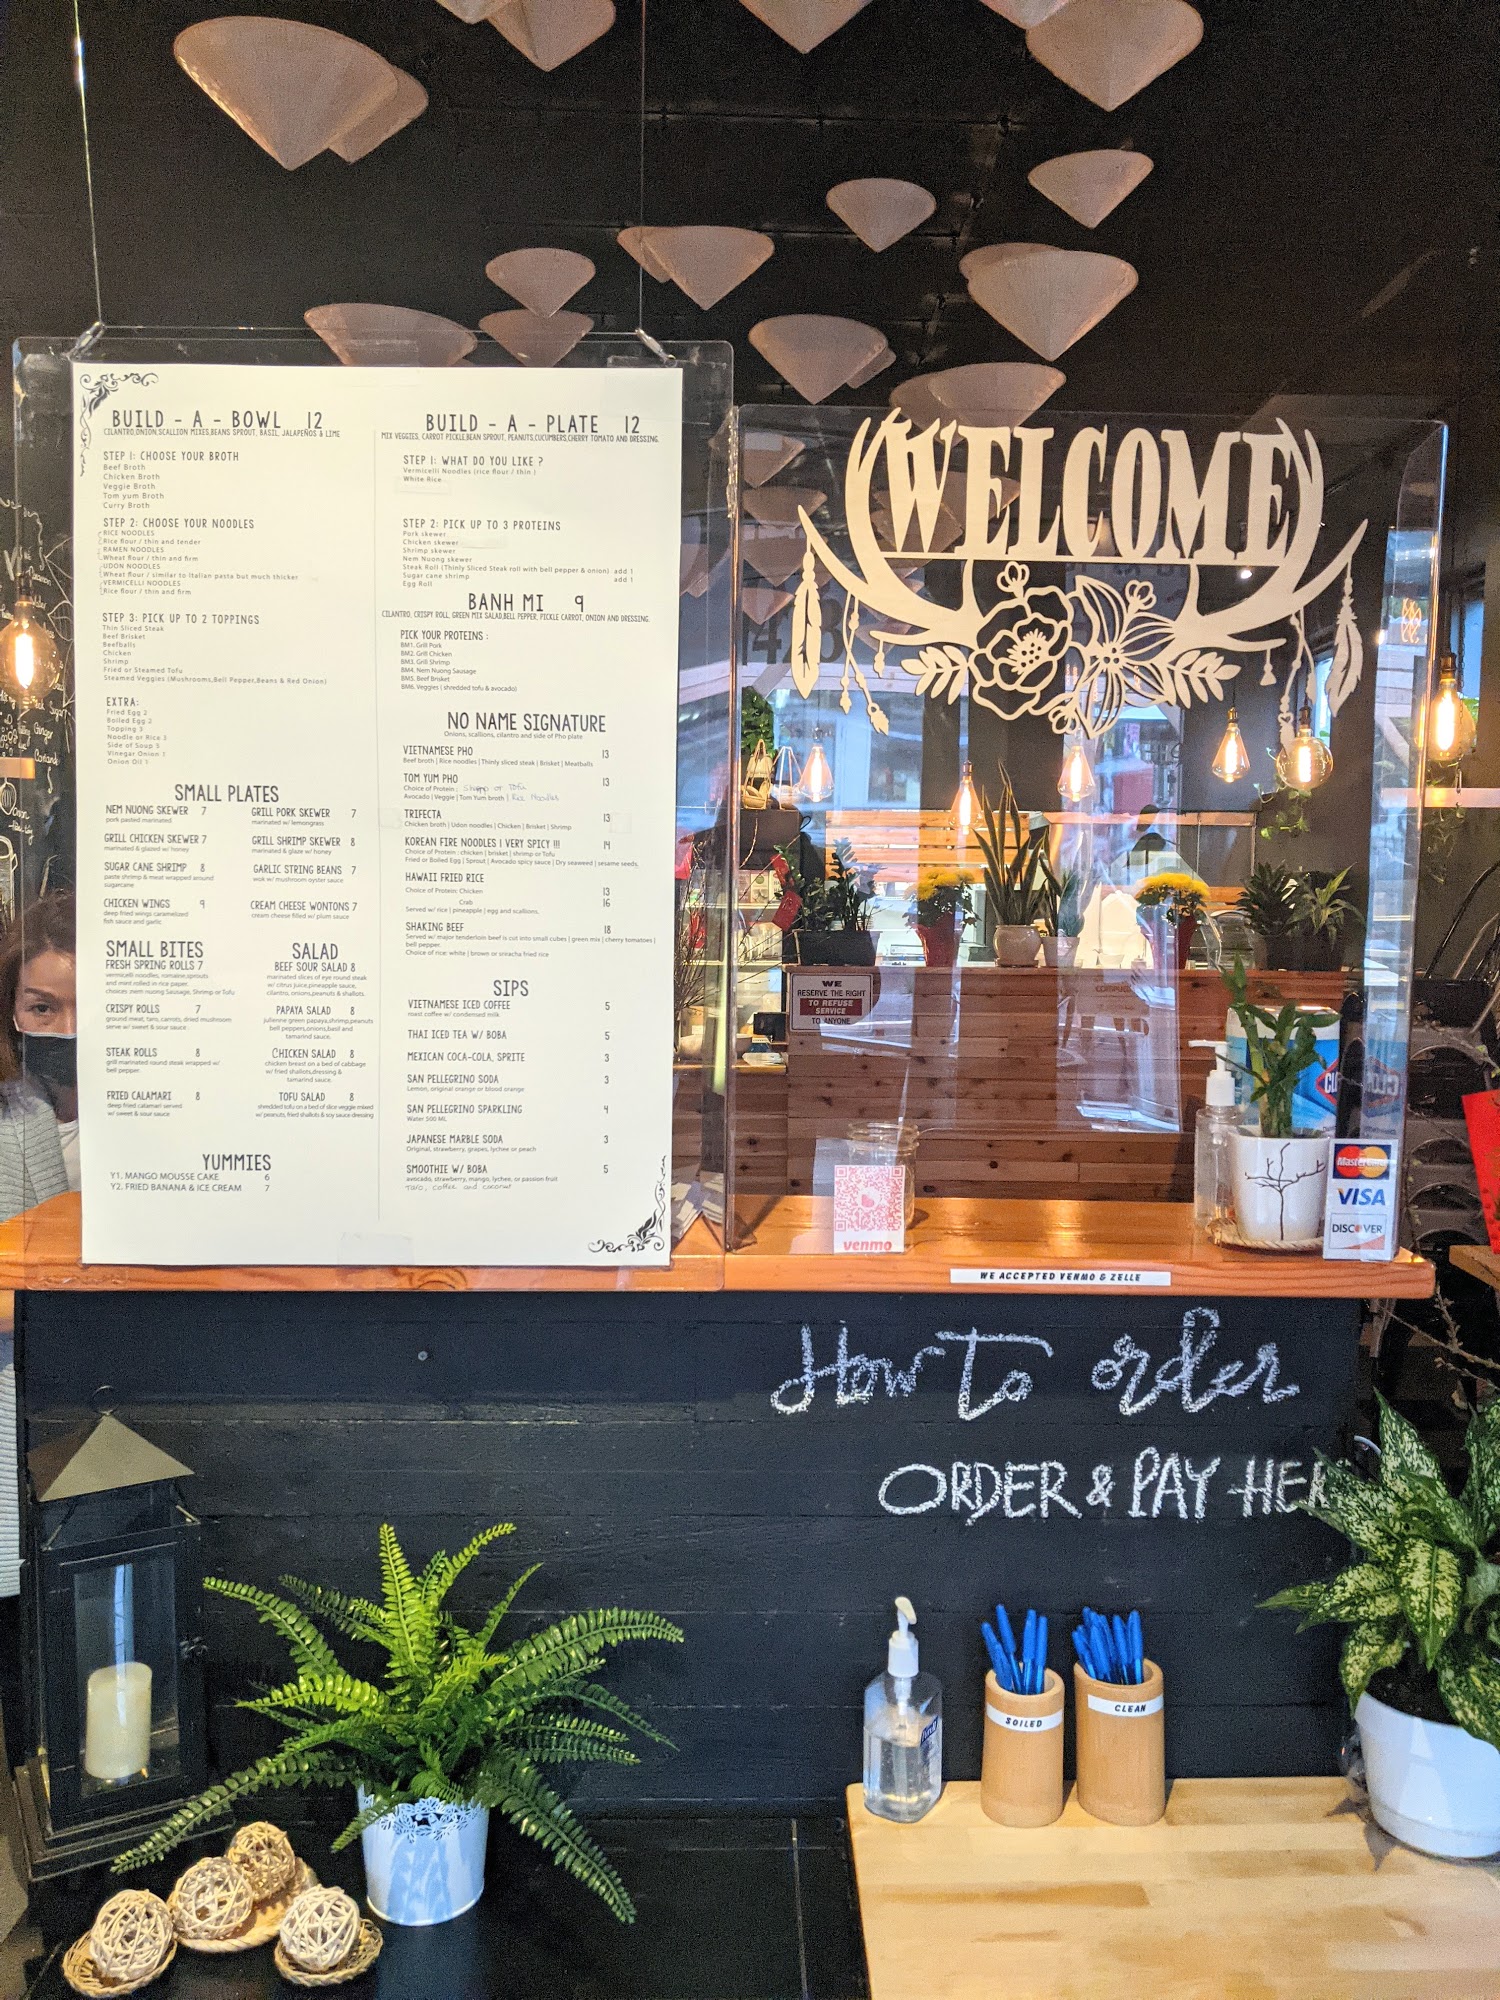 BUILD - A - BOWL 12
CILANTRO,ONION,SCALLION MIXES,BEANS SPROUT, BASIL, JALAPEÑOS & LIME
STEP 1: CHOOSE YOUR BROTH
Beef Broth
Chicken Broth
Veggie Broth
Tom yum Broth
Curry Broth
STEP 2: CHOOSE YOUR NOODLES
RICE NOODLES
Rice flour / thin and tender
RAMEN NOODLES
Wheat flour / thin and firm
UDON NOODLES
Wheat flour / similar to Italian pasta but much thicker
VERMICELLI NOODLES
Rice flour / thin and firm
STEP 3: PICK UP TO 2 TOPPINGS
Thin Sliced Steak
Beef Brisket
Beefballs
Chicken
Shrimp
Fried or Steamed Tofu
Steamed Veggies (Mushrooms,Bell Pepper,Beans & Red Onion)
EXTRA:
Fried Egg 2
Boiled Egg 2
Topping 3
Noodle or Rice 3
Side of Soup 3
Vinegar Onion 1
Onion Oil 1
SMALL PLATES
NEM NUONG SKEWER 7
pork pasted marinated
GRILL PORK SKEWER 7
marinated w/ lemongrass
GRILL CHICKEN SKEWER 7
marinated & glazed w/ honey
GRILL SHRIMP SKEWER 8
marinated & glaze w/ honey
SUGAR CANE SHRIMP 8
paste shrimp & meat wrapped around
sugarcane
GARLIC STRING BEANS 7
wok w/ mushroom oyster sauce
CHICKEN WINGS 9
deep fried wings caramelized
fish sauce and garlic
CREAM CHEESE WONTONS 7
cream cheese filled w/ plum sauce
SMALL BITES
FRESH SPRING ROLLS 7
vermicelli noodles, romaine,sprouts
and mint rolled in rice paper.
choices :nem nuong Sausage, Shrimp or Tofu
CRISPY ROLLS 7
ground meat, taro, carrots, dried mushroom
serve w/ sweet & sour sauce
STEAK ROLLS 8
grill marinated round steak wrapped w/
bell pepper.
FRIED CALAMARI 8
deep fried calamari served
w/ sweet & sour sauce
SALAD
BEEF SOUR SALAD 8
marinated slices of eye round steak
w/ citrus juice,pineapple sauce,
cilantro, onions,peanuts & shallots.
PAPAYA SALAD 8
julienne green papaya,shrimp,peanuts
bell peppers,onions,basil and
tamarind sauce.
CHICKEN SALAD 8
chicken breast on a bed of cabbage
w/ fried shallots,dressing &
tamarind sauce.
TOFU SALAD 8
shredded tofu on a bed of slice veggie mixed
w/ peanuts, fried shallots & soy sauce dressing
YUMMIES
Y1. MANGO MOUSSE CAKE 6
Y2. FRIED BANANA & ICE CREAM 7
BUILD - A - PLATE 12
MIX VEGGIES, CARROT PICKLE,BEAN SPROUT, PEANUTS,CUCUMBERS,CHERRY TOMATO AND DRESSING.
STEP 1: WHAT DO YOU LIKE ?
Vermicelli Noodles (rice flour / thin )
White Rice
STEP 2: PICK UP TO 3 PROTEINS
Pork skewer
Chicken skewer
Shrimp skewer
Nem Nuong skewer
Steak Roll (Thinly Sliced Steak roll with bell pepper & onion) add 1
Sugar cane shrimp add 1
Egg Roll
BANH MI 9
CILANTRO, CRISPY ROLL, GREEN MIX SALAD,BELL PEPPER, PICKLE CARROT, ONION AND DRESSING.
PICK YOUR PROTEINS :
BM1. Grill Pork
BM2. Grill Chicken
BM3. Grill Shrimp
BM4. Nem Nuong Sausage
BM5. Beef Brisket
BM6. Veggies ( shredded tofu & avocado)
NO NAME SIGNATURE
Onions, scallions, cilantro and side of Pho plate
VIETNAMESE PHO 13
Beef broth | Rice noodles | Thinly sliced steak | Brisket | Meatballs
TOM YUM PHO 13
Choice of Protein : Shrimp or Tofu
Avocado | Veggie | Tom Yum broth | Rice Noodles
TRIFECTA 13
Chicken broth | Udon noodles | Chicken | Brisket | Shrimp
KOREAN FIRE NOODLES | VERY SPICY !!! 14
Choice of Protein : chicken | brisket | shrimp or Tofu
Fried or Boiled Egg | Sprout | Avocado spicy sauce | Dry seaweed | sesame seeds.
HAWAII FRIED RICE
Choice of Protein: Chicken 13
Crab 16
Served w/ rice | pineapple | egg and scallions.
SHAKING BEEF 18
Served w/ major tenderloin beef is cut into small cubes | green mix | cherry tomatoes |
bell pepper.
Choice of rice: white | brown or sriracha fried rice
SIPS
VIETNAMESE ICED COFFEE 5
roast coffee w/ condensed milk
THAI ICED TEA W/ BOBA 5
MEXICAN COCA-COLA, SPRITE 3
SAN PELLEGRINO SODA 3
Lemon, original orange or blood orange
SAN PELLEGRINO SPARKLING 4
Water 500 ML
JAPANESE MARBLE SODA 3
Original, strawberry, grapes, lychee or peach
SMOOTHIE W/ BOBA 5
avocado, strawberry, mango, lychee, or passion fruit
Taro, coffee and coconut
WELCOME
WE
RESERVE THE RIGHT
TO REFUSE
SERVICE
TO ANYONE
venmo
MasterCard
VISA
DISCOVER
WE ACCEPTED VENMO & ZELLE
How To order
ORDER & PAY HER
SOILED
CLEAN